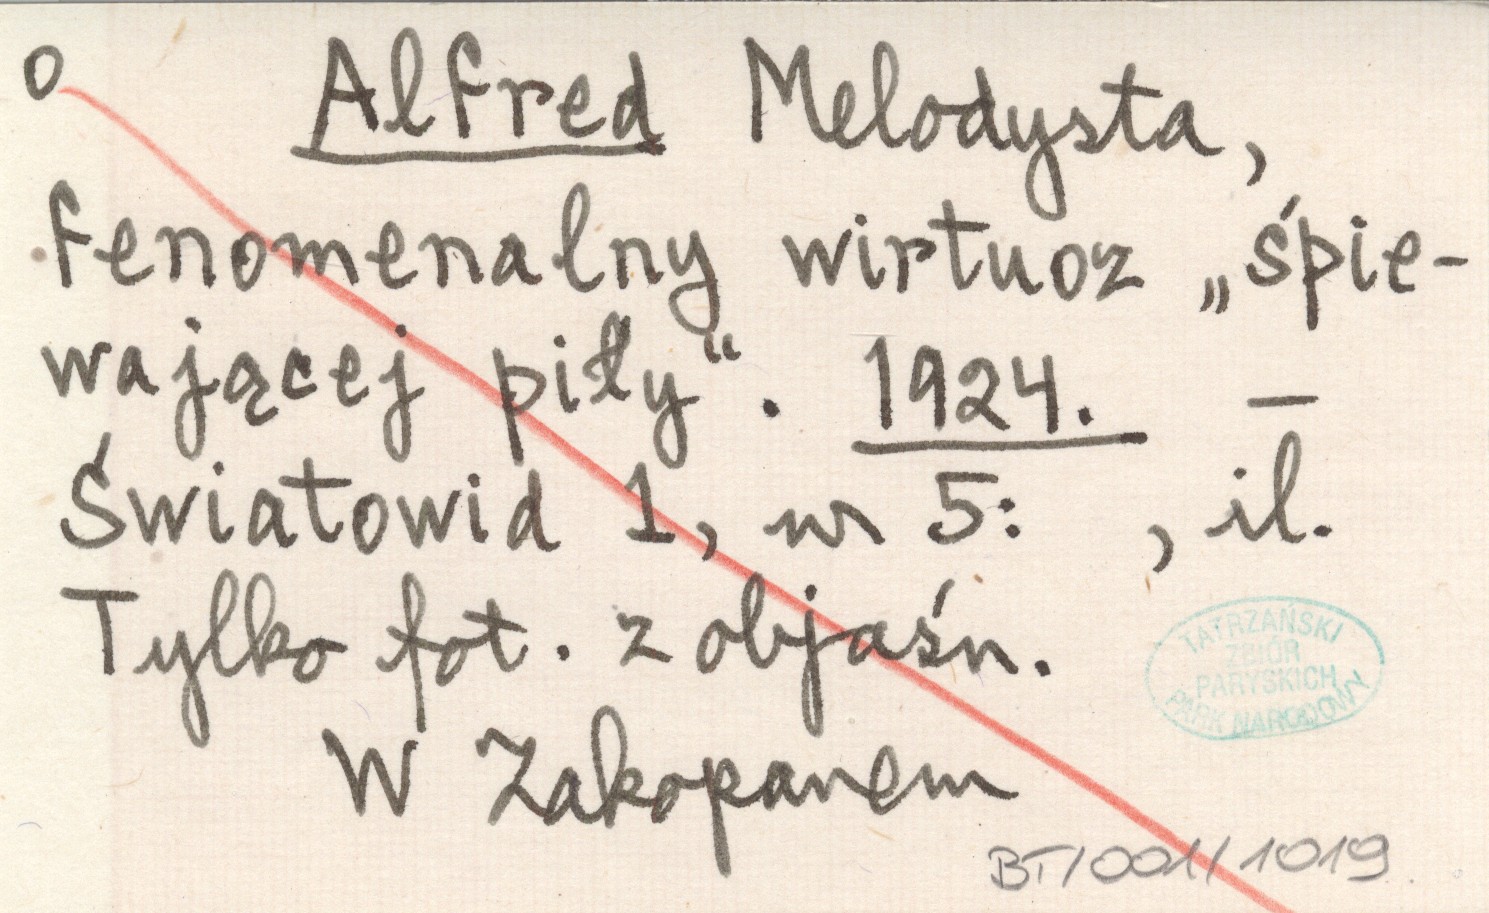 o Alfred Melodysta,
fenomenalny wirtuoz „śpie-
wającej piły“. 1924. —
Światowid 1, nr 5: , il.
Tylko fot. z objaśn.
W Zakopanem
TATRZAŃSKI
ZBIÓR
PARYSKICH
PARK NARODOWY
BT/001/1019